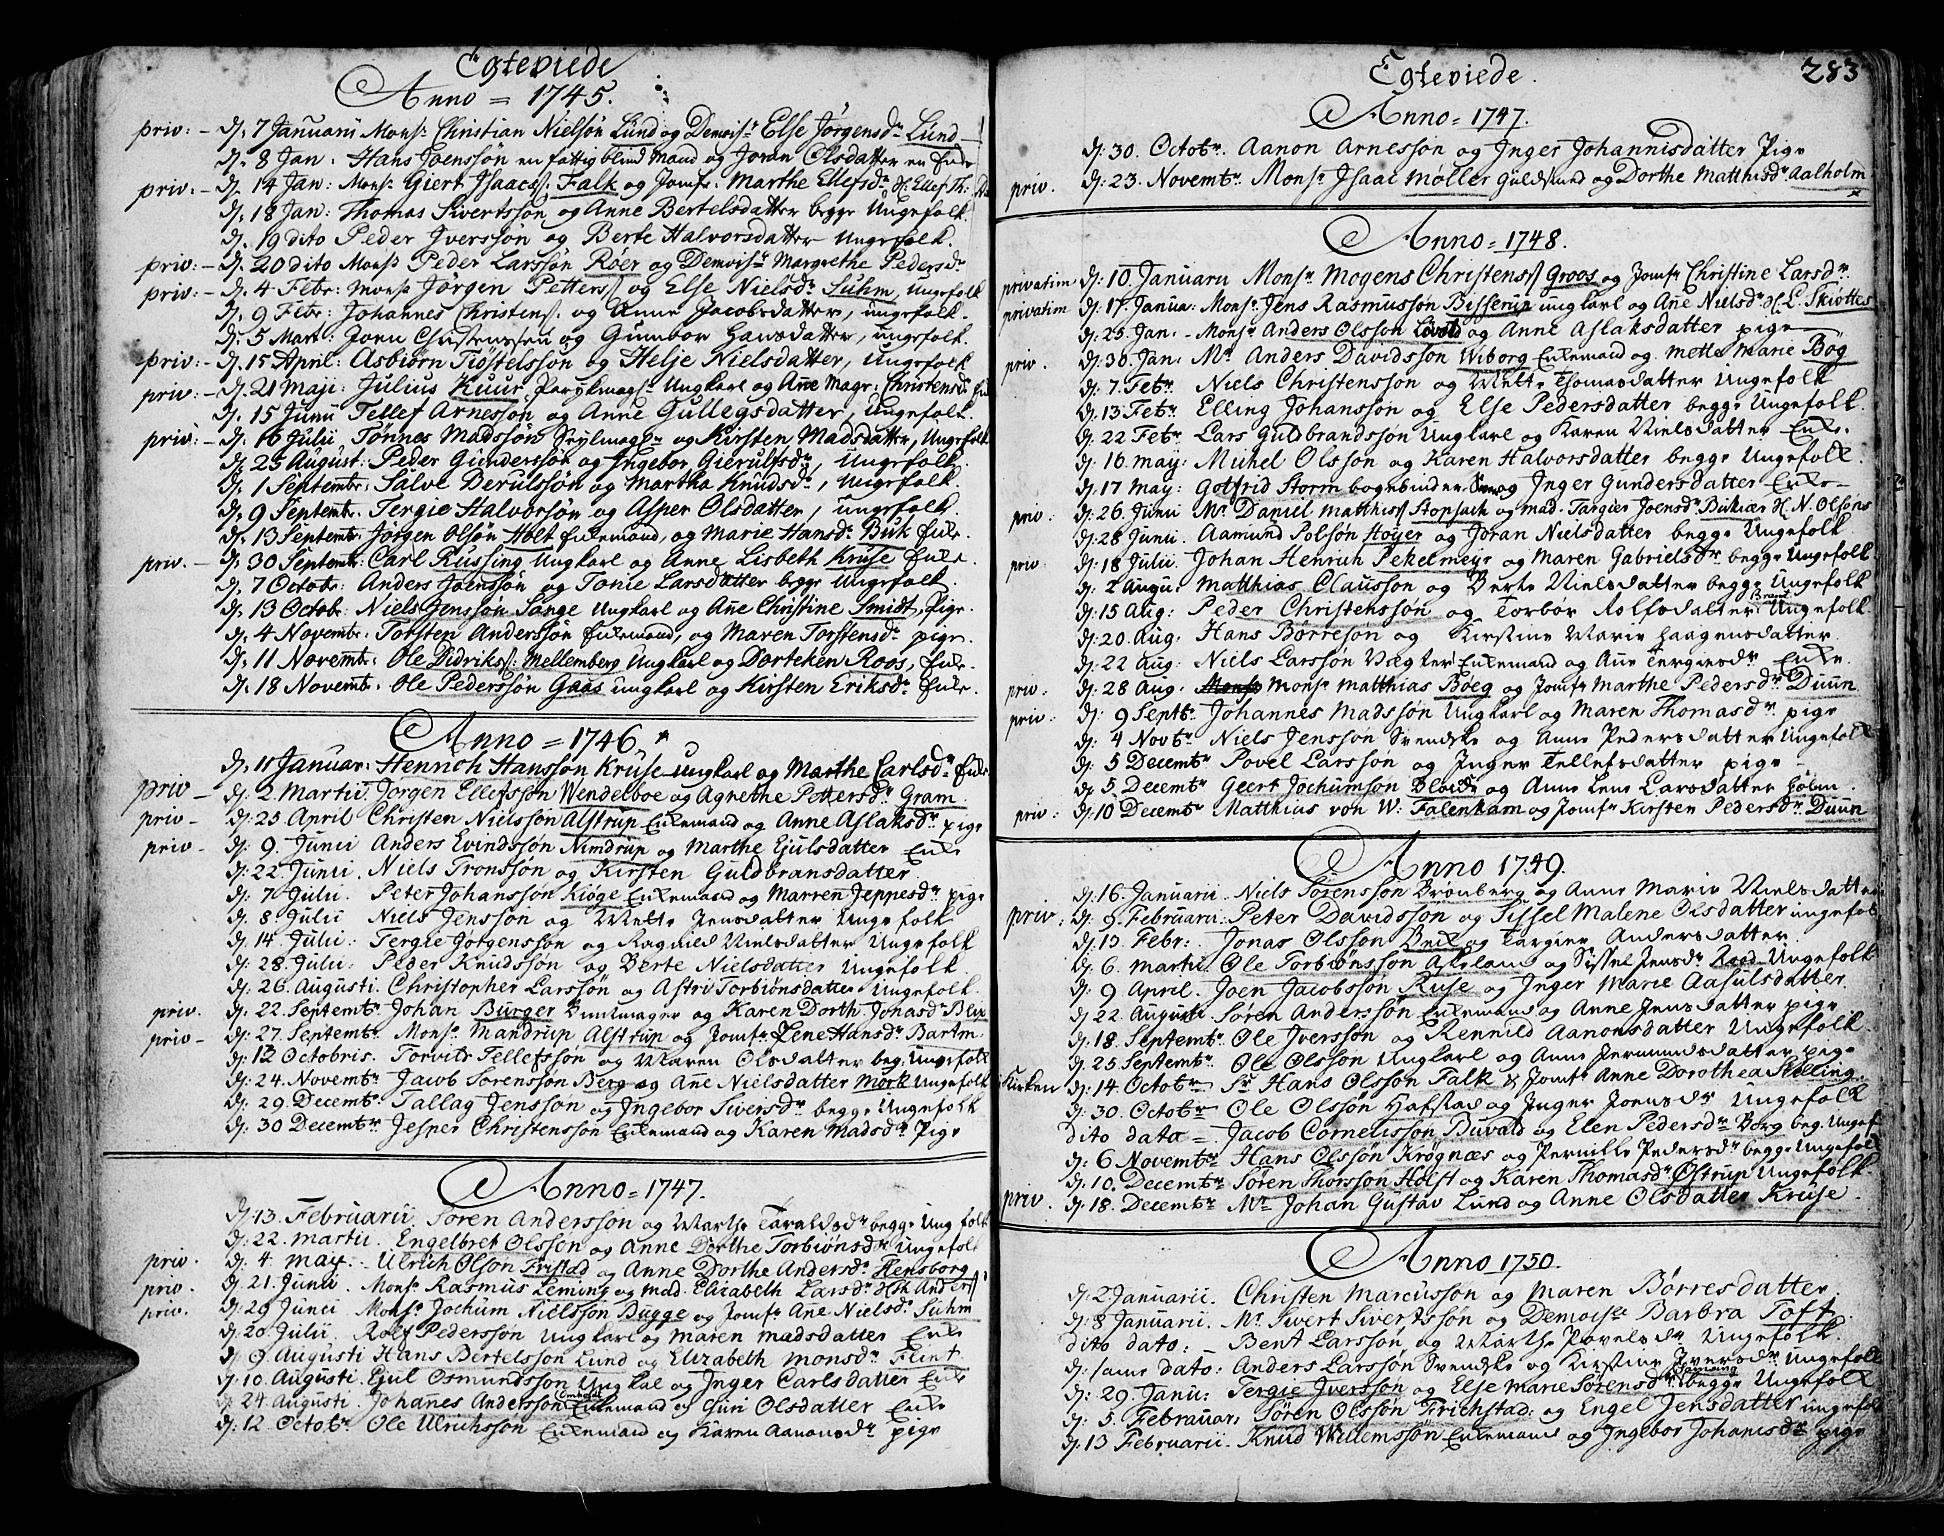 Egteviede
Anno = 1745.
priv: - d. 7 Januarii Mons.r Christian Nielsøn Lund og Demois.le Else Jørgensd.r Lund
d. 8 Jan: Hans Joenssøn en fattig blind Mand og Joran Olsdatter en Enke
priv: - d. 14 Jan: Mons.r Giert Isaacs. Falk og Jomfr: Marthe Ellefsd.r
d. 18 Jan: Thomas Sivertssøn og Anne Bertelsdatter begge Ungefolk.
d. 19 dito Peder Iverssøn og Berte Halvorsdatter Ungefolk.
priv: - d. 20 dito Mons.r Peder Larssøn Røer og Demois.le Margrethe Pedersd.r
priv: - d. 4 Febr: Mons.r Jørgen Petters. og Else Nielsd.r Suhm, Ungefolk
d. 9 Febr: Johannes Christens. og Anne Jacobsdatter, ungefolk.
d. 5 Mart: Joen Christenssøn og Gunnbor Hansdatter, ungefolk.
priv: - d. 15 April: Asbiørn Tostelssøn og Helje Nielsdatter, ungefolk
priv: - d. 21 Maji: Julius Kuur, Parykmag. Ungkarl og Ane Magr: Christensd.
d. 15 Junii Tellef Arnessøn og Anne Gullegsdatter, Ungefolk.
priv: - d. 16 Julii Tønnes Madssøn Seylmag. og Kirsten Madsdatter, Ungefolk
d. 25 August: Peder Gunderssøn og Ingebor Gierulfsd.r, Ungefolk.
d. 1 Septembr: Salve Berulssøn og Martha Knudsd.r, Ungefolk.
d. 9 Septembr. Tergie Halvorssøn og Asper Olsdatter, ungefolk.
d. 13 Septembr: Jørgen Olsøn Holt Enkemand, og Marie Hansd.r Buk Enke.
priv. - d. 30 Septembr: Carl Russing Ungkarl og Anne Lisbeth Kruse Enke.
d. 7 Octobr: Anders Joenssøn og Tonie Larsdatter begge Ungefolk.
d. 13 Octobr: Niels Jenssøn Sange Ungkarl og Ane Christine Smidt, Pige.
d. 4 Novembr: Torsten Anderssøn Enkemand, og Maren Torstensd.r pige.
d. 11 Novembr: Ole Didriks.: Mellemberg Ungkarl og Dorteken Roos, Enke.
d. 18 Novembr: Ole Pederssøn Gaas ungkarl og Kirsten Eriksd.r Enke.
Anno = 1746
d. 11 Januar: Hennich Hanssøn Kruse ungkarl og Marthe Carlsd.r Enke
priv - d. 2. Martii Jørgen Ellefssøn Wendelboe og Agnethe Pettersd.r Gram
priv - d. 25 April Christen Nielssøn Alstrup Enkemand og Anne Aslaksd.r pige
priv - d. 9. Junii Anders Evindssøn Nimdrup og Marthe Ejulsdatter Enke
d. 22 Junii. Niels Tronssøn og Kirsten Guldbransdatter.
d. 7 Julii. Peter Johanssøn Kiøge Enkemand og Marren Jeppesd.r pige
d. 8 Julii Niels Jenssøn og Mette Jensdatter Ungefolk
d. 14 Julii: Tergie Jørgenssøn og Ragnild Nielsdatter Ungefolk
d. 28. Julii: Peder Knudssøn og Berte Nielsdatter Ungefolk
d. 26. Augusti: Christopher Larssøn og Astri Torbiønsdatter Ungefolk.
priv. d. 22. Septembr Johan Burger Buntmager og Karen Dorth. Jonasd.r Blix
priv - d. 27. Septembr. Mons.r Mandrup Alstrup og Jomf.r Lene Hansd.r Bartm.
d. 12 Octobris. Torvits Tellefssøn og Maren Olsdatter beg. Ungefolk
d. 24. Novembr Jacob Sørenssøn Berg og Ane Nielsdatter Mørk Ungefolk
d. 29. Decembr Tallag Jenssøn og Ingebor Siversd.r begge Ungefolk
d. 30 Decembr Jesper Christenssøn Enkemand og Karen Madsd.r Pige
Anno = 1747.
d. 13. Februarii. Søren Anderssøn og Marthe Taraldsd.r begge Ungefolk
d. 22. Martii. Engelbret Olssøn og Anne Dorthe Torbiønsd.r Ungefolk
priv. d. 4. May. Ulrich Olson Fristad og Anne Dorthe Andersd.r Hensborg
priv. d. 21. Junii. Mons.r Rasmus Leming og Mad. Elizabeth Larsd.r
priv. d. 29 Junii Mons.r Jochum Nielssøn Bugge og Jomf.r Ane Nielsd.r Suhm
d. 20. Julii. Rolf Pederssøn Ungkarl og Maren Madsdatter Enke
d. 9. Augusti Hans Bertelssøn Lund og Elizabeth Monsd.r Flint
d. 10. Augusti. Ejul Osmundssøn Ungkal og Inger Carlsdatter Enke
d. 24. Augusti. Johanes Anderssøn Enkemand og Guri Olsdatter Enke
d. 12 Octobr Ole Ulrichssøn Enkemand og Karen Aanonsd.r pige
283
Egteviede.
Anno = 1747.
d. 30. Octobr. Aanon Arnessøn og Inger Johannisdatter Pige
priv. d. 23. Novembr. Mons.r Isaac Møller Guldsmed og Dorthe Matthisd.r Aalholm
Anno = 1748.
privatim d. 10 Januarii Mons.r Mogens Christens. Groos og Jomf.r Christine Larsd.r
privatim d. 17. Janua: Mons.r Jens Rasmussøn Bisserup ungkarl og Ane Nielsd.r H. L. Skiøttes
d. 25. Jan. - Mons.r Anders Olssøn Lovold og Anne Aslaksdatter pige
priv. d. 30. Jan. M.r Anders Davidssøn Wiborg Enkemand og Mette Marie Bøg
d. 7. Febr. Niels Christenssøn og Mette Thomasdatter Ungefolk
d. 13 Febr. Elling Johanssøn og Else Pedersdatter begge Ungefolk.
d. 22 Febr. Lars Guldbrandssøn Ungkarl og Karen Nielsdatter Enke.
d. 16 May: Michel Olssøn og Karen Halvorsdatter begge Ungefolk.
d. 17 May: Gotfrid Storm bogbinder og Inger Gundersdatter Enke
priv. d. 26. Junii M.r Daniel Matthis. Stopsack og Mad. Targier Joensd.r H. N. Olsøns
d. 28 Junii. Aamund Polssøn Høyer og Joran Nielsdatter begge Ungefolk
priv d. 18 Julii. Johan Henrich Pekelmeyr og Maren Gabrielsd.r begge Ungefolk
d. 2 Augu: Matthias Claussøn og Berte Nielsdatter begge Ungefolk
d. 15 Aug: Peder Christenssøn og Torbor Rolfsdatter Ungefolk
d. 20. Aug. Hans Børresøn og Kirstine Marie Haagensdatter.
d. 22 Aug: Niels Larssøn Vægter Enkemand og Ane Tergiesd.r Enke.
priv: d. 28 Aug. Mons.r Matthias Bøeg og Jomf.r Marthe Pedersd.r Duun
priv: d. 9 Septbr. Johannes Madssøn Ungkarl og Maren Thomasd.r pige
d. 4 Novbr. Niels Jenssøn Svendske og Anne Pedersdatter Ungefolk
d. 5 Decembr. Povel Larssøn og Inger Tellefsdatter pige
d. 5 Decembr. Geert Jochumsøn Bloide og Anne Lene Larsdatter Holm.
priv: d. 10 Decembr. Matthias von W: Falenkam og Jomf.r Kirsten Pedersd.r Duun
Anno 1749.
d. 16. Januarii. Niels Sørenssøn Bronberg og Anne Marie Nielsdatter
priv: d. 5. Februarii. Peter Davidssøn og Sissel Malene Olsdatter ungefolk
d. 13. Febr: Jonas Olssøn og Targier Andersdatter.
d. 6. Martii. Ole Torbiønssøn Askeland og Sissel Jensd.r Rood Ungefolk
d. 9 April. Joen Jacobssøn Ruse og Inger Marie Aasulsdatter
d. 22 Augusti Søren Anderssøn Enkemand og Anne Jensdatter pige
d. 18. Septembr. Ole Iverssøn og Rennild Aanonsdatter Ungefolk
d. 25 Septembr. Ole Olssøn Ungkarl og Anne Jermundsdatter pige
Kirken d. 14 Octobr. S.r Hans Olssøn Falk & Jomf.r Anne Dorothea Skelling.
d. 30. Octobr. Ole Olssøn Hafstad og Inger Joensd.r Ungefolk
dito dato = Jacob Cornelissøn Buvald og Elen Pedersd.r Borg beg. Ungef
d. 6 Novembr. Hans Olssøn Krøgnæs og Pernille Pedersd.r begge Ungefolk
d. 10. Decembr. Søren Thorssøn Holst og Karen Thomasd.r Østrup Ungefolk.
priv. d. 18. Decembr. M.r Johan Gustav Lund og Anne Olsdatter Kruse.
Anno 1750.
d. 2 Januarii. Christen Marcussøn og Maren Børresdatter.
d. 8 Januarii. M.r Sivert Sivertssøn og Demois.le Barbra Toft
dito dato: - Bent Larssøn og Marthe Povelsd.r Ungefolk.
d. same dato: Anders Larssøn Svendske og Kirstine Iversd.r Ungefolk
d. 29. Janu: Tergie Iverssøn og Else Marie Sørensd.r begge Ungefolk
d. 5. Februar: Søren Olssøn Frichstad: og Engel Jensdatter ungefolk
d. 13 Februarii. Knud Willemssøn Enkemand og Ingebor Johanisd.r pige